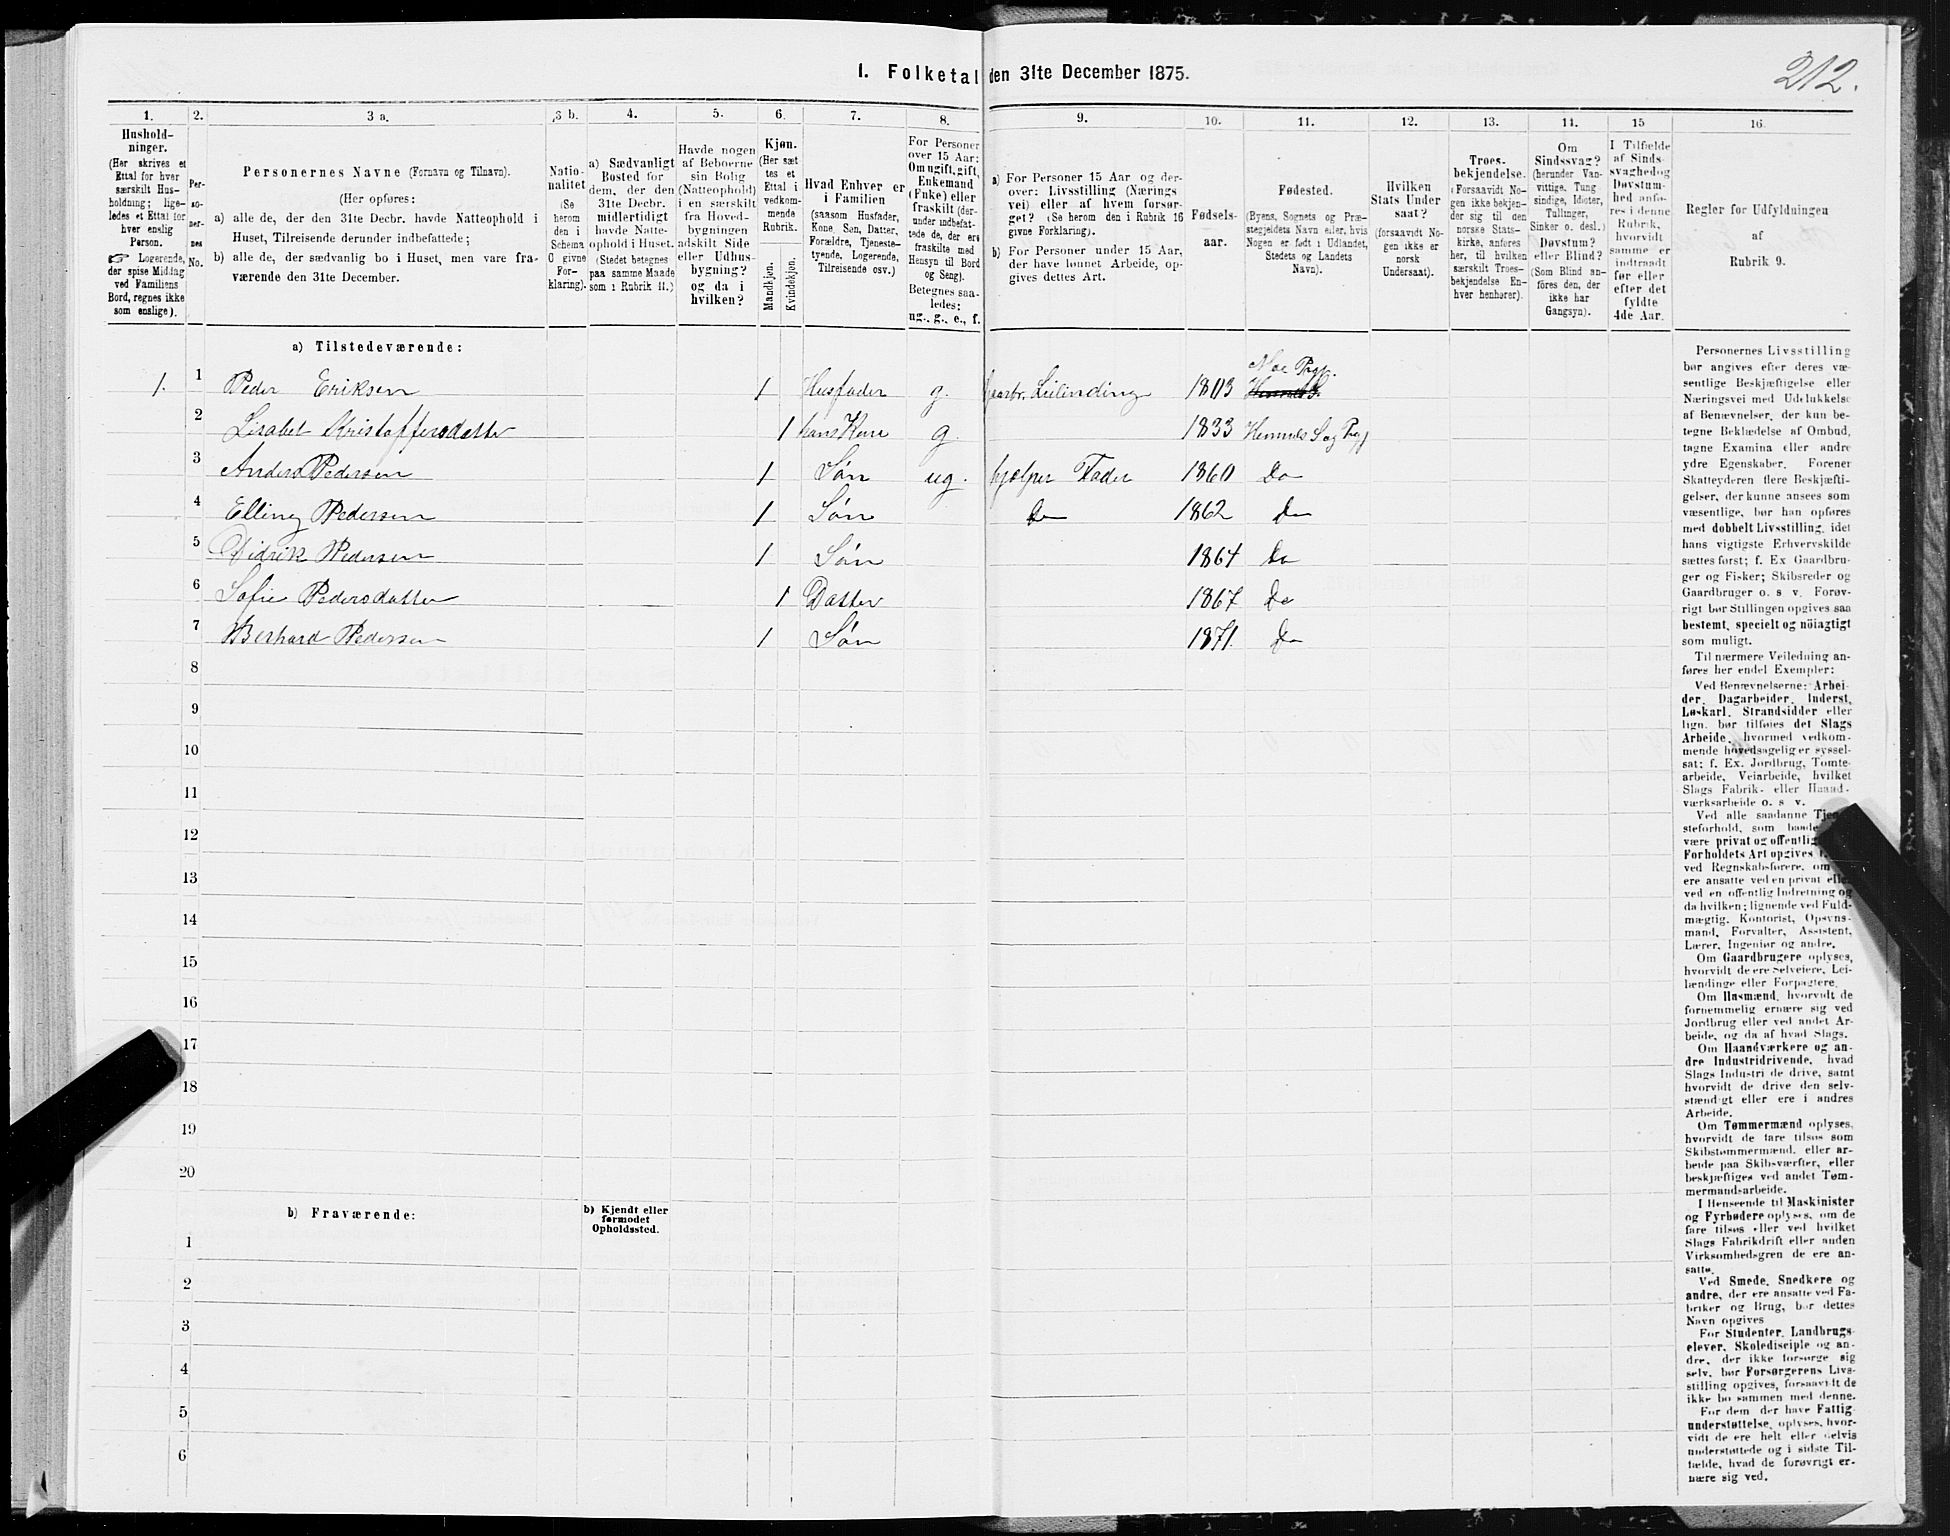 212.
I. Folketal den 31te December 1875.
1.
Hushold-
ninger.
(Her skrives et
Ettal for hver
særskilt Hus-
holdning; lige-
ledes et Ettal for
hver enslig
Person.
☞ Logerende,
der spise Middag
ved Familiens
Bord, regnes ikke
som enslige).
2.
Per-
so-
ner-
nes
No.
3 a.
Personernes Navne (Fornavn og Tilnavn).
(Her opføres:
a) alle de, der den 31te Decbr. havde Natteophold i
Huset, Tilreisende derunder indbefattede;
b) alle de, der sædvanlig bo i Huset, men vare fra-
værende den 31te December.
3 b.
Natio-
nalitet
(Se
herom
den i
Schema
C givne
For-
klaring).
4.
a) Sædvanligt
Bosted for
dem, der den
31te Decbr.
midlertidigt
havde Natte-
ophold i Huset.
(Stedet betegnes
paa samme Maade
som i Rubrik 11.)
5.
Havde nogen
af Beboerne
sin Bolig
(Natteophold)
i en særskilt
fra Hoved-
bygningen
adskilt Side
eller Udhus-
bygning?
og da i
hvilken?
6.
Kjøn.
(Her sæt
tes et
Ettal i
vedkom-
mende
Rubrik.
Mandkjøn.
Kvindekjøn.
7.
Hvad Enhver er
i Familien
(saasom Husfader,
Kone, Søn, Datter,
Forældre, Tjeneste-
tyende, Logerende,
Tilreisende osv.)
8.
For Personer
over 15 Aar:
Om ugift, gift,
Enkemand
(Enke) eller
fraskilt (der-
under indbefat-
tede de, der ere
fraskilte med
Hensyn til Bord
og Seng).
Betegnes saa-
ledes:
ug., g., e., f.
9.
a) For Personer 15 Aar og der-
over: Livsstilling (Nærings
vei) eller af hvem forsør-
get? (Se herom den i Rubrik 16
givne Forklaring).
b) For Personer under 15 Aar,
der have lønnet Arbeide, op-
gives dettes Art.
10.
Fødsels-
aar.
11.
Fødested.
(Byens, Sognets og Præ-
stegjeldets Navn eller, hvis
Nogen er født i Udlandet,
Stedets og Landets
Navn).
12.
Hvilken
Stats Under
saat?
(forsaavidt No-
gen ikke er
norsk
Undersaat).
13.
Troes-
bekjendelse.
(Forsaavidt No-
gen ikke bekjen-
der sig til den
norske Stats-
kirke, anføres
her, til hvilken
særskilt Troes-
bekjendelse En-
hver henhører).
14.
Om
Sindssvag?
(herunder Van-
vittige, Tung
sindige, Idioter,
Tullinger,
Sinker o. desl.)
Døvstum?
eller Blind?
(Som Blind an-
føres den, der
ikke har
Gangsyn).
15
I Tilfælde
af Sinds-
svaghed og
Døvstum-
hed anfø-
res i denne
Rubrik,
hvorvidt
samme er
indtraadt
før eller
efter det
fyldte
4de Aar.
16.
Regler for Udfyldningen
af
Rubrik 9.
a) Tilstedeværende:
1. 1 Peder Eriksen 1 Husfader g. Gaardbr. Leilending 1803 Noe Prgt.
2 Lisabet Kristoffersdatter 1 hans Kone g. 1833 Hemnes S og Prgj
3 Anders Pedersen 1 Søn ug. hjelper Fader 1860 Do
4 Elling Pedersen 1 Søn Do 1862 Do
5 Didrik Pedersen 1 Søn 1864 Do
6 Sofie Pedersdatter 1 Datter 1867 Do
7 Berhard Pedersen 1 Søn 1871. Do
8
9
10
11
12
13
14
15
16
17
18
19
20
b) Fraværende:
b) Kjendt eller
formodet
Opholdssted.
1
2
3
4
5
6
Personernes Livsstilling
bør angives efter deres væ-
sentlige Beskjæftigelse eller
Næringsvei med Udelukkelse
af Benævnelser, der kun be-
tegne Beklædelse af Ombud,
tagne Examina eller andre
ydre Egenskaber. Forener
Skatteyderen flere Beskjæfti-
gelser, der kunne ansees som
væsentlige, bør han opføres
med dobbelt Livsstilling, idet
hans vigtigste Erhvervskilde
sættes først; f. Ex Gaardbru-
ger og Fisker; Skibsreder og
Gaardbruger o. s v. Forøv-
rigt bør Stillingen opgives saa
bestemt, specielt og nöiagtigt
som muligt.
Til nærmere Veiledning an-
føres her endel Exempler:
Ved Benævnelserne: Arbei-
der, Dagarbeider, Inderst,
Løskarl, Strandsidder eller
lign. bør tilføies det Slags
Arbeide, hvormed vedkom-
mende hovedsagelig er syssel-
sat; f. Ex. Jordbrug, Tomte-
arbeide, Veiarbeide, hvilket
Slags Fabrik- eller Haand-
værksarbeide o. s v.
Ved alle saadanne
steforhold, som
være privat og
Forholdets Art opgives
ved Regnskabsførere, om
ere ansatte ved en privat
ved en offentlig Indretning og
da hvilken; lignende ved Fuld-
mægtig, Kontorist, Opsyns-
mand, Forvalter, Assistent,
Lærer, Ingeniør og andre.
Om Gaardbrugere oplyses,
hvorvidt de ere Selveiere, Lei-
lændinge eller Forpagtere.
Om Husmænd, hvorvidt de
fornemmelig ernære sig ved
Jordbrug eller ved andet Ar-
beide, og da af hvad Slags.
Om Haandværkere og an-
dre Industridrivende, hvad
Slags Industri de drive, samt
hvorvidt de drive den selv-
stændigt eller ere i andres
Arbeide.
Om Tømmermænd oplyses,
hvorvidt de fare tilsøs som
Skibstømmermænd, eller ar-
beide paa Skibsværfter, eller
beskjæftiges ved andet Tøm-
mermandsarbeide.
I Henseende til Maskinister
og Fyrbødere oplyses, om de
fare tilsøs eller ved hvilket
Slags Fabrikdrift eller anden
Virksomhedsgren de ere an-
satte.
Ved Smede, Snedkere og
andre, der ere ansatte ved Fa-
briker og Brug, bør dettes
Navn opgives
For Studenter, Landbrugs-
elever, Skoledisciple og an-
dre, der ikke forsørge sig
selv, bør Forsørgerens Livs-
stilling opgives, forsaavidt de
ikke bo sammen med denne.
For dem der have Fattig-
understøttelse, oplyses, hvor-
vidt de ere helt eller delvis
understøttede og i sidste Til-
fælde, hvad de forøvrigt er-
nære sig ved.